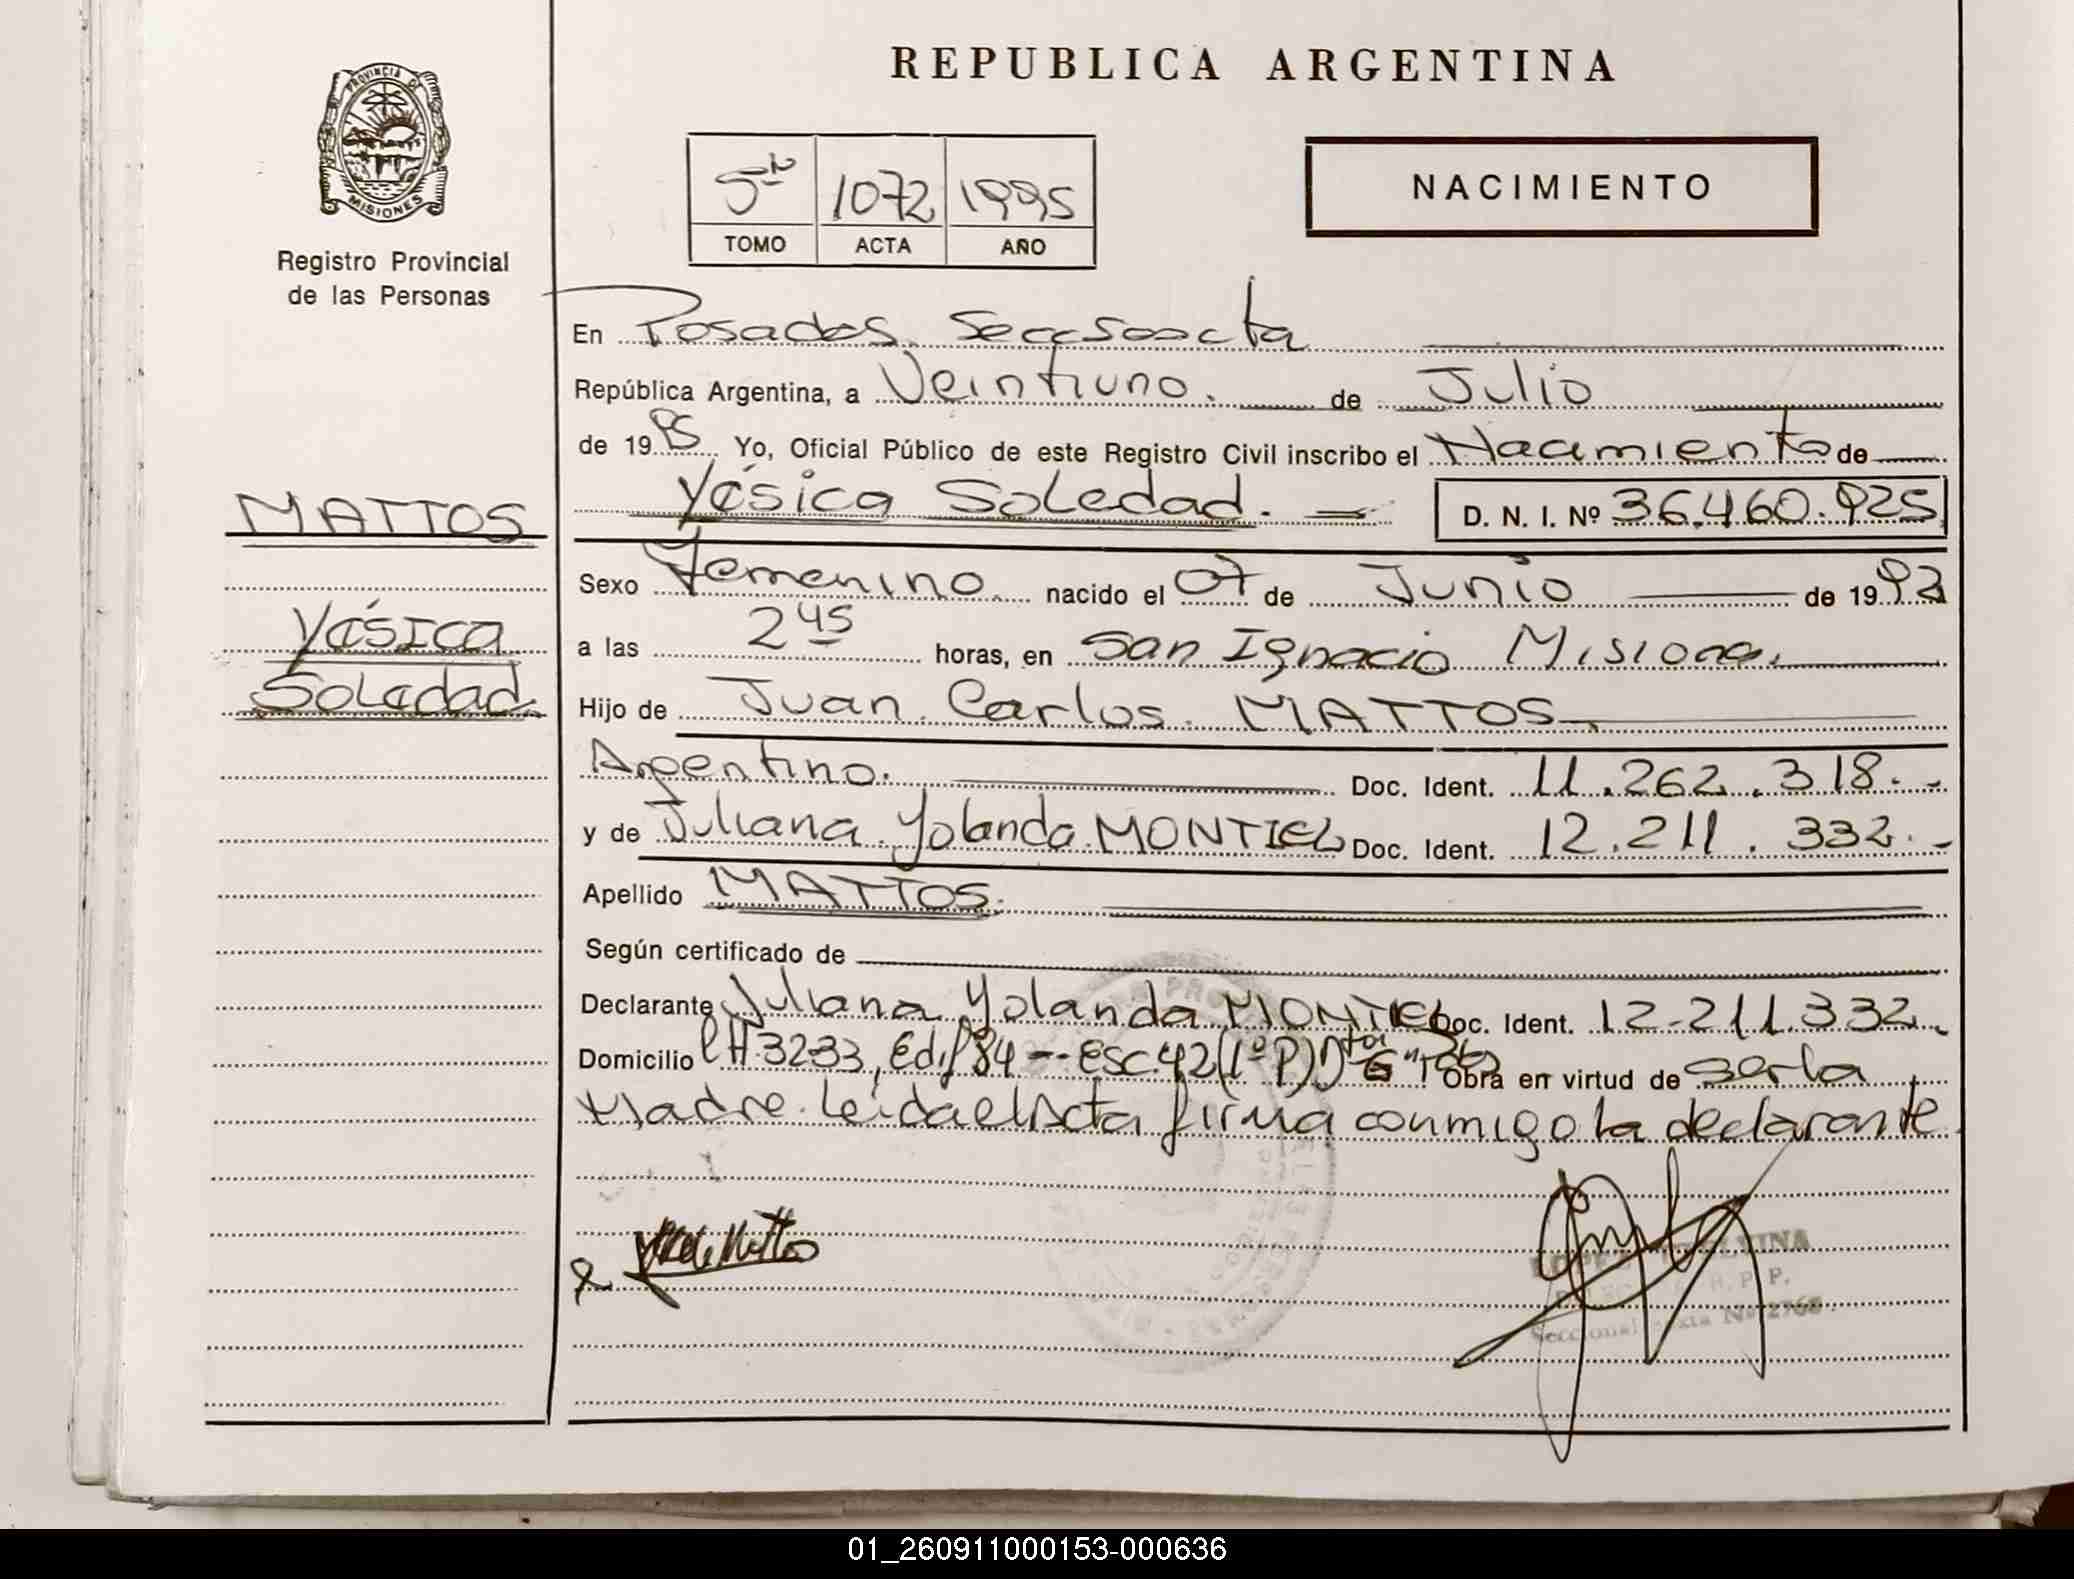 REPUBLICA ARGENTINA
PROVINCIA DE
MISIONES
Registro Provincial
de las Personas
5to 1072 1995
TOMO ACTA AÑO
NACIMIENTO
En Posadas Secc Sexta
República Argentina, a Veintiuno. de Julio
de 1995 Yo, Oficial Público de este Registro Civil inscribo el Nacimiento de
Yésica Soledad. D. N. I. Nº 36.460.925
MATTOS
Yésica
Soledad
Sexo Femenino. nacido el 07 de Junio de 1992
a las 2 45 horas, en San Ignacio Misiones.
Hijo de Juan Carlos MATTOS
Argentino. Doc. Ident. 11.262.318.-
y de Juliana Yolanda MONTIEL Doc. Ident. 12.211.332.-
Apellido MATTOS.
Según certificado de
Declarante Juliana Yolanda MONTIEL Doc. Ident. 12.211.332.
Domicilio CH 3233, Edif 84 -- esc. 42 (1º P) Obra en virtud de ser la
Madre. Leída el Acta firma conmigo la declarante
Seccional Sexta Nº 2768
01_260911000153-000636